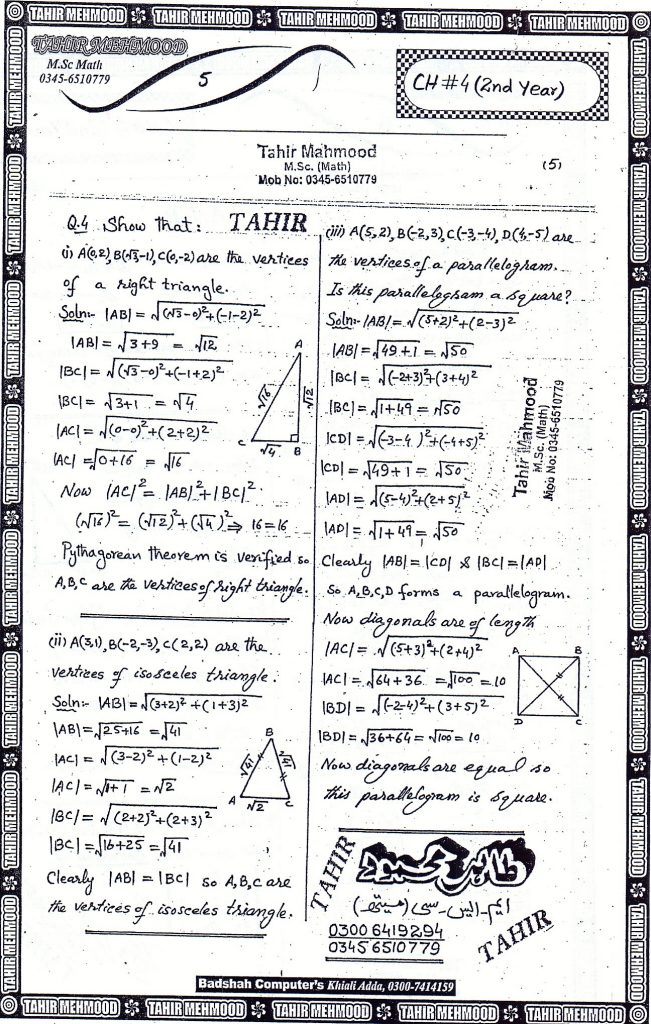 TAHIR MEHMOOD TAHIR MEHMOOD TAHIR MEHMOOD TAHIR MEHMOOD TAHIR MEHMOOD
TAHIR MEHMOOD
M.Sc Math
0345-6510779
5
CH #4 (2nd Year)
Tahir Mahmood
M.Sc. (Math)
Mob No: 0345-6510779
(5)
Q.4 Show that: TAHIR
(i) A(0,2), B(√3,-1), C(0,-2) are the vertices
of a right triangle.
Soln:- |AB| = √((√3-0)²+(-1-2)²)
|AB| = √(3+9) = √12
|BC| = √((√3-0)²+(-1+2)²)
|BC| = √(3+1) = √4
|AC| = √((0-0)²+(2+2)²)
|AC| = √(0+16) = √16
Now |AC|² = |AB|²+|BC|²
(√16)² = (√12)²+(√4)² ⇒ 16=16
Pythagorean theorem is verified so
A,B,C are the vertices of right triangle.
A
√16
√12
C
√4
B
(ii) A(3,1), B(-2,-3), C(2,2) are the
vertices of isosceles triangle.
Soln:- |AB| = √((3+2)²+(1+3)²)
|AB| = √(25+16) = √41
|AC| = √((3-2)²+(1-2)²)
|AC| = √(1+1) = √2
|BC| = √((2+2)²+(2+3)²)
|BC| = √(16+25) = √41
Clearly |AB| = |BC| so A,B,C are
the vertices of isosceles triangle.
B
√41
√41
A
√2
C
(iii) A(5,2), B(-2,3), C(-3,-4), D(4,-5) are
the vertices of a parallelogram.
Is this parallelogram a square?
Soln:- |AB| = √((5+2)²+(2-3)²)
|AB| = √(49+1) = √50
|BC| = √((-2+3)²+(3+4)²)
|BC| = √(1+49) = √50
|CD| = √((-3-4)²+(-4+5)²)
|CD| = √(49+1) = √50
|AD| = √((5-4)²+(2+5)²)
|AD| = √(1+49) = √50
Clearly |AB| = |CD| & |BC| = |AD|
So A,B,C,D forms a parallelogram.
Now diagonals are of length
|AC| = √((5+3)²+(2+4)²)
|AC| = √(64+36) = √100 = 10
|BD| = √((-2-4)²+(3+5)²)
|BD| = √(36+64) = √100 = 10
Now diagonals are equal so
this parallelogram is square.
A
B
D
C
Tahir Mahmood
M.Sc. (Math)
Mob No: 0345-6510779
TAHIR
طاہر محمود
ایم-ایس-سی (میتھ)
0300 6419294
0345 6510779
TAHIR
Badshah Computer's Khiali Adda, 0300-7414159
TAHIR MEHMOOD TAHIR MEHMOOD TAHIR MEHMOOD TAHIR MEHMOOD TAHIR MEHMOOD